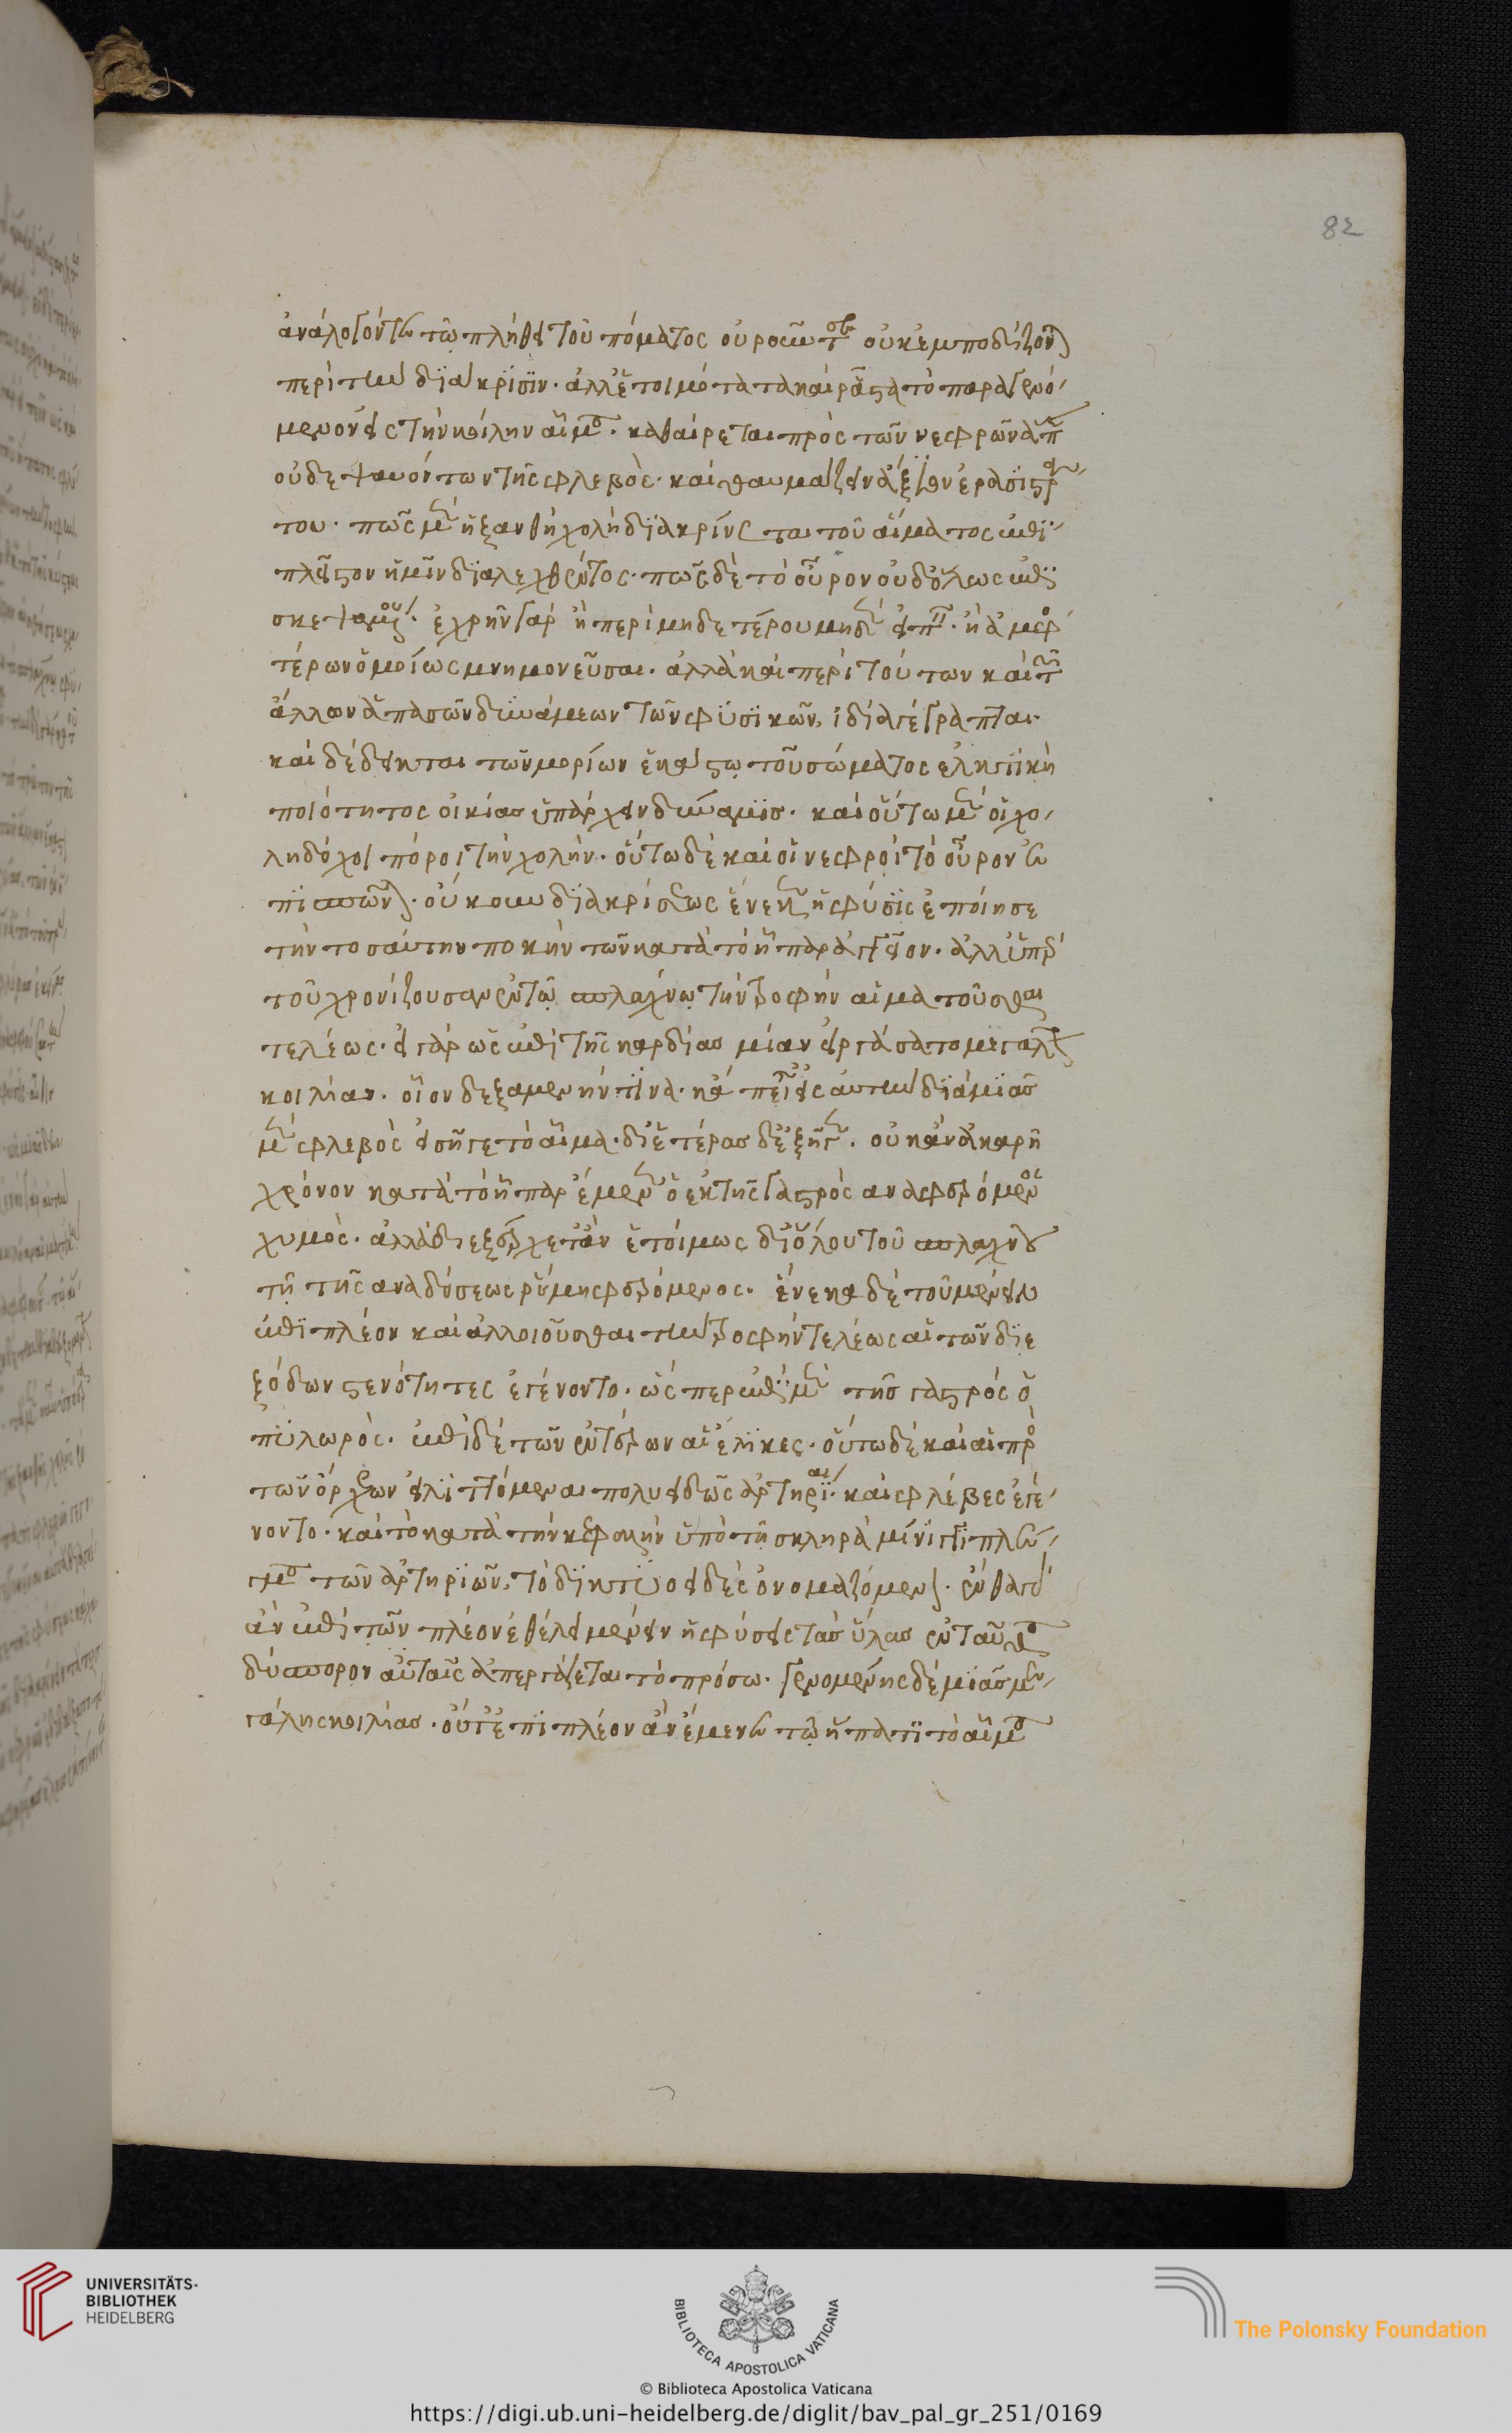 82
ἀνάλογόν τε τῷ πλήθει τοῦ πόματος οὐροῦντος οὐκ ἐμποδίζον
περὶ τὴν διάκρισιν. ἀλλ' ἑτοιμότατα καὶ ῥᾷστα τὸ παραγενό
μενον εἰς τὴν κοίλην αἷμα. καθαίρεται πρὸς τῶν νεφρῶν ἅπαν
οὐδὲ ψαυόντων τῆς φλεβὸς. καὶ θαυμάζειν ἄξιον ἐρασιστρά
του. πῶς μὲν ἡ ξανθὴ χολὴ διακρίνεται τοῦ αἵματος ἐπὶ
πλεῖστον ἡμῖν διαλεχθέντος. πῶς δὲ τὸ οὖρον οὐδ' ὅλως ἐπι
σκεψαμένου. ἐχρῆν γὰρ ἢ περὶ μηδετέρου μηδὲν εἰπεῖν. ἢ ἀμφο
τέρων ὁμοίως μνημονεῦσαι. ἀλλὰ καὶ περὶ τούτων καὶ τῶν
ἄλλων ἁπασῶν δυνάμεων τῶν φυσικῶν, ἰδίᾳ γέγραπται.
καὶ δέδεικται τῶν μορίων ἑκάστῳ τοῦ σώματος ἑλκτικὴ
ποιότητος οἰκείας ὑπάρχειν δύναμις. καὶ οὕτω μὲν οἱ χο
ληδόχοι πόροι τὴν χολήν. οὕτω δὲ καὶ οἱ νεφροὶ τὸ οὖρον ἐ
πισπῶνται. οὔκουν διακρίσεως ἕνεκεν ἡ φύσις ἐποίησε
τὴν τοσαύτην πλοκὴν τῶν κατὰ τὸ ἧπαρ ἀγγείων. ἀλλ' ὑπὲρ
τοῦ χρονίζουσαν ἐν τῷ σπλάγχνῳ τὴν τροφὴν αἱματοῦσθαι
τελέως. εἰ γὰρ ὡς ἐπὶ τῆς καρδίας μίαν εἰργάσατο μεγάλην
κοιλίαν. οἷον δεξαμενήν τινα. κἄπειτ' εἰς αὐτὴν διὰ μιᾶς
μὲν φλεβὸς εἰσῆγε τὸ αἷμα. δι' ἑτέρας δ' ἐξῆγεν. οὐκ ἂν ἀκαρῆ
χρόνον κατὰ τὸ ἧπαρ ἔμεινεν ὁ ἐκ τῆς γαστρὸς ἀναφερόμενος
χυμὸς. ἀλλὰ διεξέρχετ' ἂν ἑτοίμως δι' ὅλου τοῦ σπλάγχνου
τῇ τῆς ἀναδόσεως ῥύμῃ φερόμενος. ἕνεκα δὲ τοῦ μένειν
ἐπὶ πλέον καὶ ἀλλοιοῦσθαι τὴν τροφὴν τελέως αἱ τῶν διε
ξόδων στενότητες ἐγένοντο. ὥσπερ ἐπὶ μὲν τῆς γαστρός ὁ
πυλωρός. ἐπὶ δὲ τῶν ἐντέρων αἱ ἕλικες. οὕτω δὲ καὶ αἱ πρὸ
τῶν ὄρχεων ἑλιττόμεναι πολυειδῶς ἀρτηρίαι καὶ φλέβες ἐγέ
νοντο. καὶ τὸ κατὰ τὴν κεφαλὴν ὑπὸ τῇ σκληρᾷ μήνιγγι πλέ
γμα τῶν ἀρτηριῶν, τὸ δικτυοειδὲς ὀνομαζόμενον. ἔνθα
ἂν ἐπὶ πλέον ἐθέλει μένειν ἡ φύσις τὰς ὕλας ἐνταῦθα
δύσπορον αὐταῖς ἀπεργάζεται τὸ πρόσω. γενομένης δὲ μιᾶς με
γάλης κοιλίας. οὔτ' ἐπὶ πλέον ἂν ἔμενε τῷ ἥπατι τὸ αἷμα
UNIVERSITÄTS-
BIBLIOTHEK
HEIDELBERG
BIBLIOTECA APOSTOLICA VATICANA
The Polonsky Foundation
© Biblioteca Apostolica Vaticana
https://digi.ub.uni-heidelberg.de/diglit/bav_pal_gr_251/0169